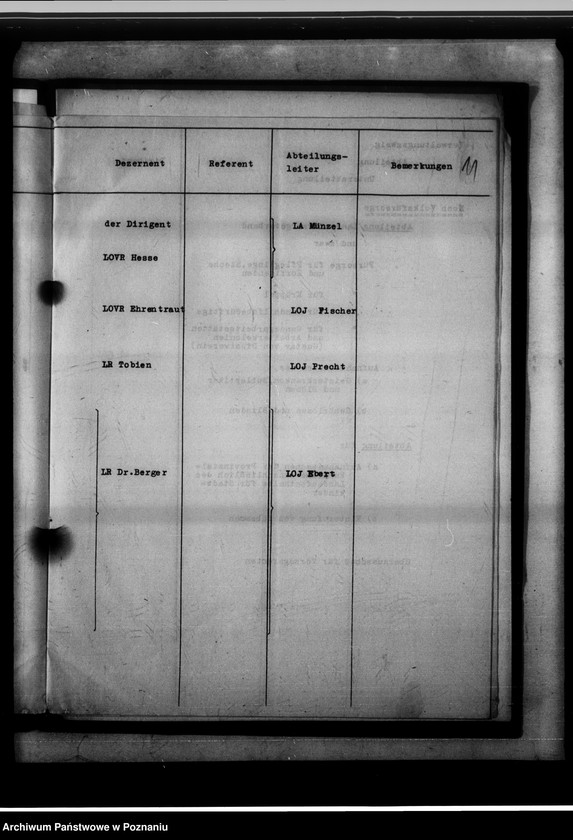 Dezernent Referent Abteilungs-
leiter Bemerkungen 11
der Dirigent LA Münzel
LOVR Hesse
LOVR Ehrentraut LOJ Fischer
LR Tobien LOJ Precht
LR Dr.Berger LOJ Ebert
Archiwum Państwowe w Poznaniu